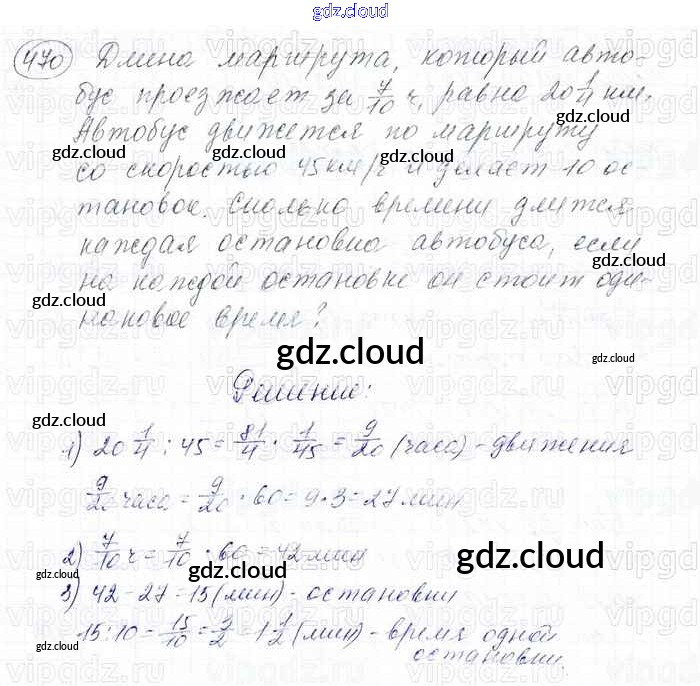 gdz.cloud
470 Длина маршрута, который авто-
бус проезжает за 7/10 ч, равна 20 1/4 км.
Автобус движется по маршруту
gdz.cloud gdz.cloud
со скоростью 45 км/ч и делает 10 ос-
тановок. Сколько времени длится
каждая остановка автобуса, если
gdz.cloud
на каждой остановке он стоит оди-
gdz.cloud
наковое время?
gdz.cloud
gdz.cloud
Решение:
gdz.cloud
1) 20 1/4 : 45 = 81/4 · 1/45 = 9/20 (часа) - движения
gdz.cloud
9/20 часа = 9/20 · 60 = 9·3 = 27 мин
2) 7/10 ч = 7/10 · 60 = 42 мин
gdz.cloud gdz.cloud
3) 42 - 27 = 15 (мин) - остановки
15 : 10 = 15/10 = 3/2 = 1 1/2 (мин) - время одной
остановки.
gdz.cloud gdz.cloud